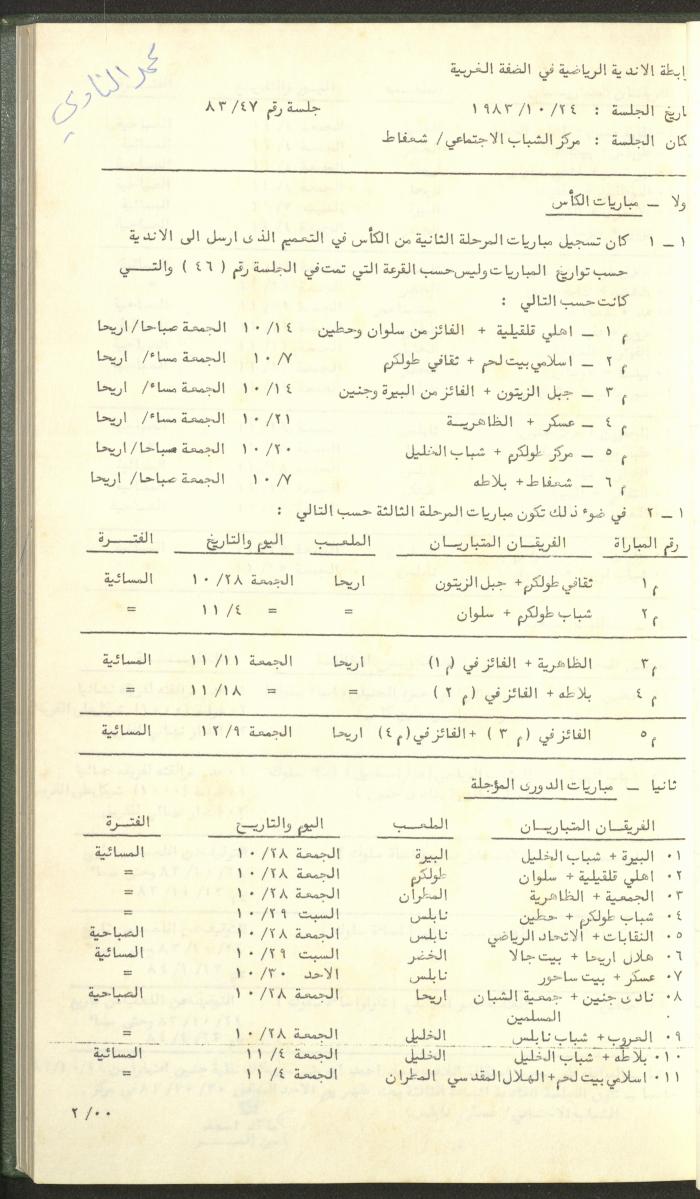 محمد النادي
ابطة الاندية الرياضية في الضفة الغربية
اريخ الجلسة : ١٩٨٣/١٠/٢٤ جلسة رقم ٨٣/٤٧
كان الجلسة : مركز الشباب الاجتماعي/ شعفاط
ولا ــ مباريات الكأس
١ ــ ١ كان تسجيل مباريات المرحلة الثانية من الكأس في التعميم الذى ارسل الى الاندية
حسب تواريخ المباريات وليس حسب القرعة التي تمت في الجلسة رقم ( ٤٦ ) والتـــي
كانت حسب التالي :
م ١ ــ اهلي قلقيلية + الفائز من سلوان وحطين ١٠/١٤ الجمعة صباحا/ اريحا
م ٢ ــ اسلامي بيت لحم + ثقافي طولكرم ١٠/٧ الجمعة مساء/ اريحا
م ٣ ــ جبل الزيتون + الفائز من البيرة وجنين ١٠/١٤ الجمعة مساء/ اريحا
م ٤ ــ عسكر + الظاهريــة ١٠/٢١ الجمعة مساء/ اريحا
م ٥ ــ مركز طولكرم + شباب الخليل ١٠/٢٠ الجمعة صباحا/ اريحا
م ٦ ــ شعفاط+ بلاطه ١٠/٧ الجمعة صباحا/ اريحا
١ ــ ٢ في ضوء ذلك تكون مباريات المرحلة الثالثة حسب التالي :
رقم المباراة الفريقــان المتباريــان الملعــب اليوم والتاريخ الفتـــرة
م١ ثقافي طولكرم+ جبل الزيتون اريحا الجمعة ١٠/٢٨ المسائية
م٢ شباب طولكرم + سلوان = = ١١/٤ =
م٣ الظاهرية + الفائز في (م١) اريحا الجمعة ١١/١١ المسائية
م ٤ بلاطه+ الفائز في (م ٢ ) = = ١١/١٨ =
م٥ الفائز في (م ٣ ) +الفائز في(م٤) اريحا الجمعة ١٢/٩ المسائية
ثانيا ــ مباريات الدورى المؤجلة
الفريقــان المتباريــان الملعــب اليوم والتاريــخ الفتــرة
٠١ البيرة + شباب الخليل البيرة الجمعة ١٠/٢٨ المسائية
٠٢ اهلي قلقيلية + سلوان طولكرم الجمعة ١٠/٢٨ =
٠٣ الجمعية + الظاهرية المطران الجمعة ١٠/٢٨ =
٠٤ شباب طولكرم + حطين نابلس السبت ١٠/٢٩ =
٠٥ النقابات+ الاتحاد الرياضي نابلس الجمعة ١٠/٢٨ الصباحية
٠٦ هلال اريحا + بيت جالا الخضر السبت ١٠/٢٩ المسائية
٠٧ عسكر + بيت ساحور نابلس الاحد ١٠/٣٠ =
٠٨ نادى جنين + جمعية الشبان اريحا الجمعة ١٠/٢٨ الصباحية
المسلمين
٠٩ العروب+ شباب نابلس الخليل الجمعة ١٠/٢٨ =
٠١٠ بلاطه + شباب الخليل الخليل الجمعة ١١/٤ المسائية
٠١١ اسلامي بيت لحم+الهلال المقدسي المطران الجمعة ١١/٤ =
٢/٠٠